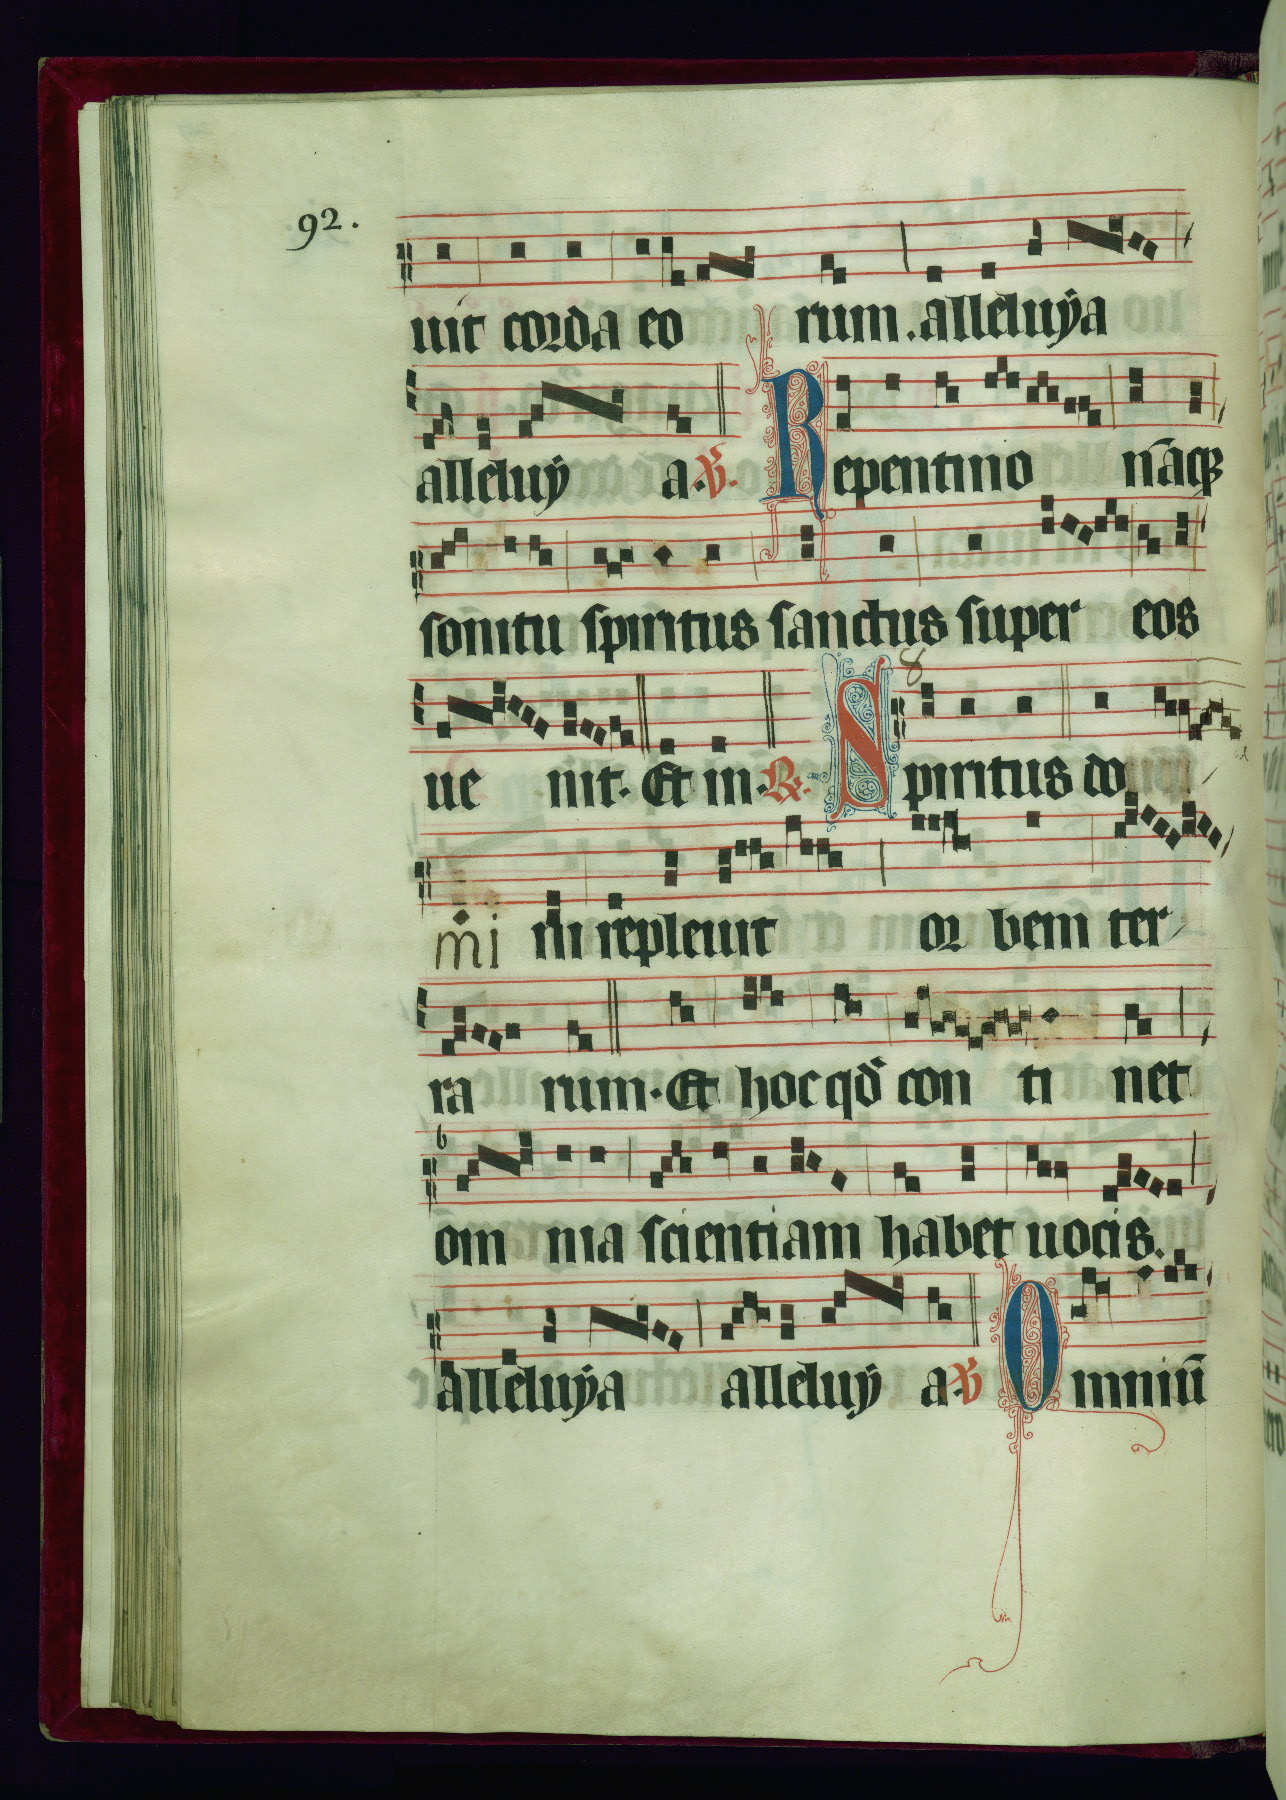 92.
uit corda eo rum. alleluẏa
alleluẏ a. ℣. Repentino nāqꝫ
sonitu spiritus sanctus super eos
8
ue nit. Et in. ℟. Spiritus do
mi ni repleuit or bem ter
ra rum. Et hoc qd̄ con ti net
6
om nia scientiam habet uocis.
alleluẏa alleluẏ a. ℣ Omniū